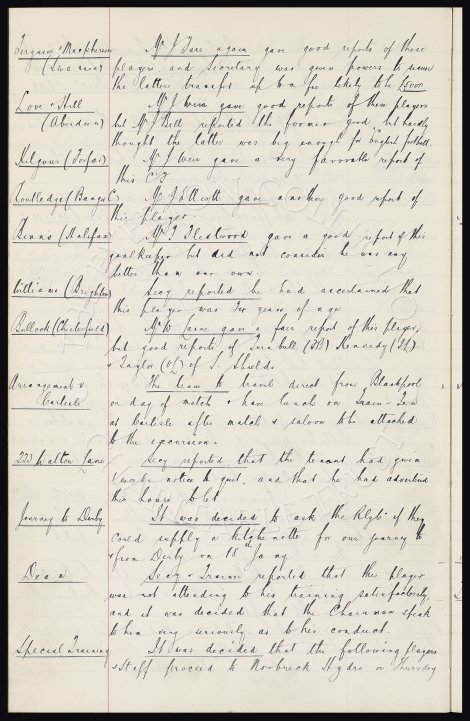 Ferguson & Macpherson Mr J Fare again gave good reports of these
(Swansea) players and Secretary was given powers to secure
the latters transfer up to a fee likely to be £500
Love & Hill Mr J Weir gave good reports of these players
(Aberdeen) but Mr Bell reported the former good, but hardly
thought the latter was big enough for English football.
Kilgour (Forfar) Mr J Weir gave a very favorable report of
this C/F
Routledge (Bangor) Mr J Ellicott gave another good report of
this player.
Binns (Halifax) Mr T Fleetwood gave a good report of this
goalkeeper but did not consider he was any
better than our own
Williams (Brighton) Secy reported he had ascertained that
this player was years of age
Bullock (Chesterfield) Mr W Cairns gave a fair report of this player,
but good reports of Turnbull (RB) Kennedy (IL)
& Taylor (OL) of S. Shields
Arrangements v The team to travel direct from Blackpool
Carlisle on day of match & have lunch on train. Tea
at Carlisle after match & saloon to be attached
to the excursion.
223 Walton Lane Secy reported that the tenant had given
1 weeks notice to quit, and that he had advertised
this house to let
Journey to Derby It was decided to ask the Rlys if they
could supply a kitchenette for our journey to
& from Derby on 18th Jany
Dean Secy & Trainer reported that this player
was not attending to his training satisfactorily,
and it was decided that the Chairman speak
to him very seriously as to his conduct.
Special Training It was decided that the following players
& Staff proceed to Norbreck Hydro on Thursday